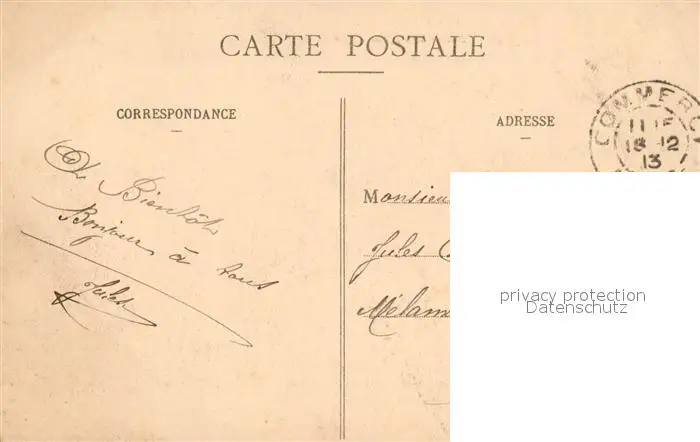 CARTE POSTALE
CORRESPONDANCE
A Bientôt
Bonjour à tous
Jules
ADRESSE
COMMERCY
18 12
13
Monsieu
Jules
privacy protection
Datenschutz